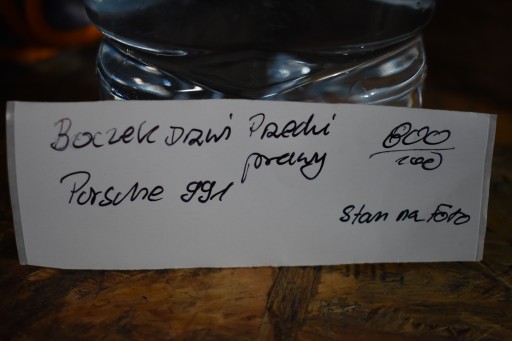 Boczek Drzwi Przedni
prawy
800
1000
Porsche 991
Stan na Foto